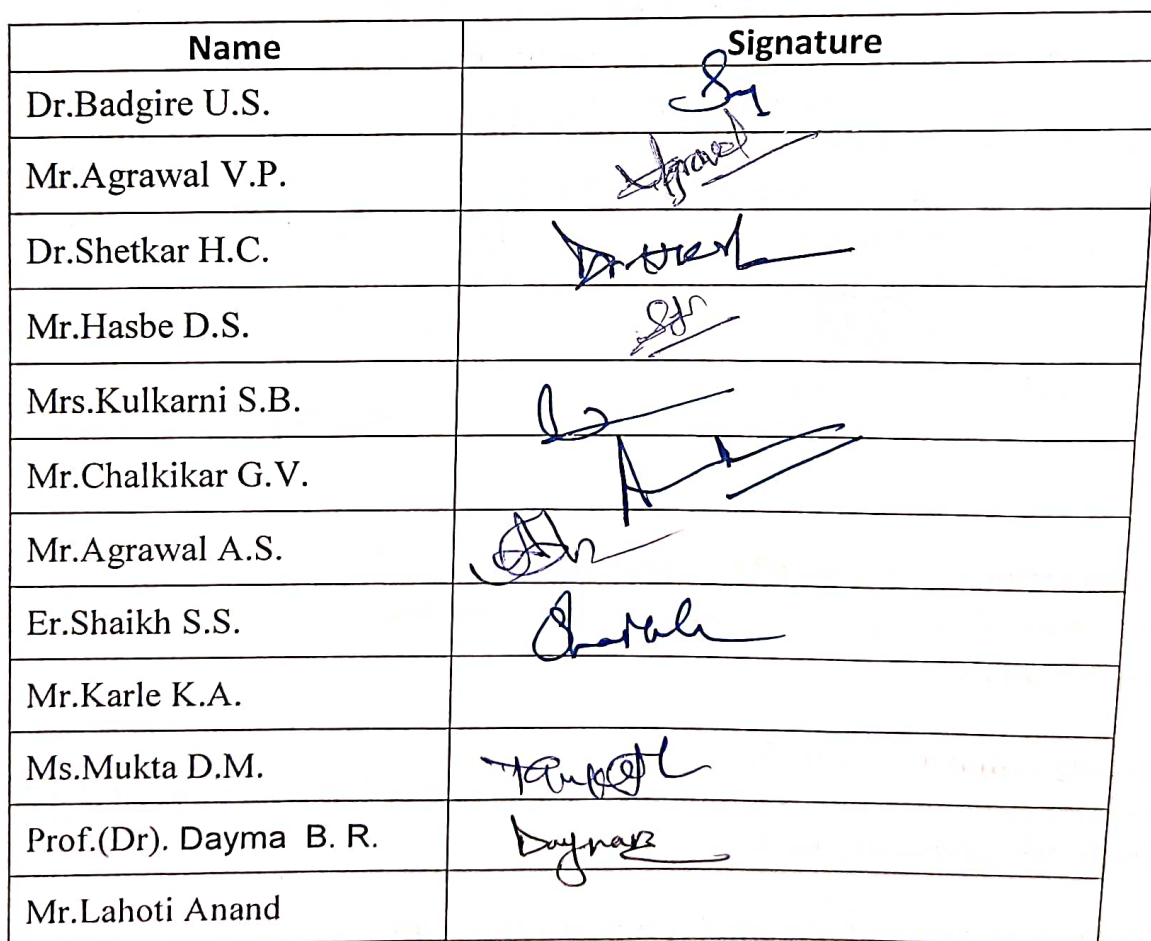 Name Signature
Dr.Badgire U.S.
Mr.Agrawal V.P. Agrawal
Dr.Shetkar H.C.
Mr.Hasbe D.S.
Mrs.Kulkarni S.B.
Mr.Chalkikar G.V.
Mr.Agrawal A.S.
Er.Shaikh S.S.
Mr.Karle K.A.
Ms.Mukta D.M.
Prof.(Dr). Dayma B. R.
Mr.Lahoti Anand